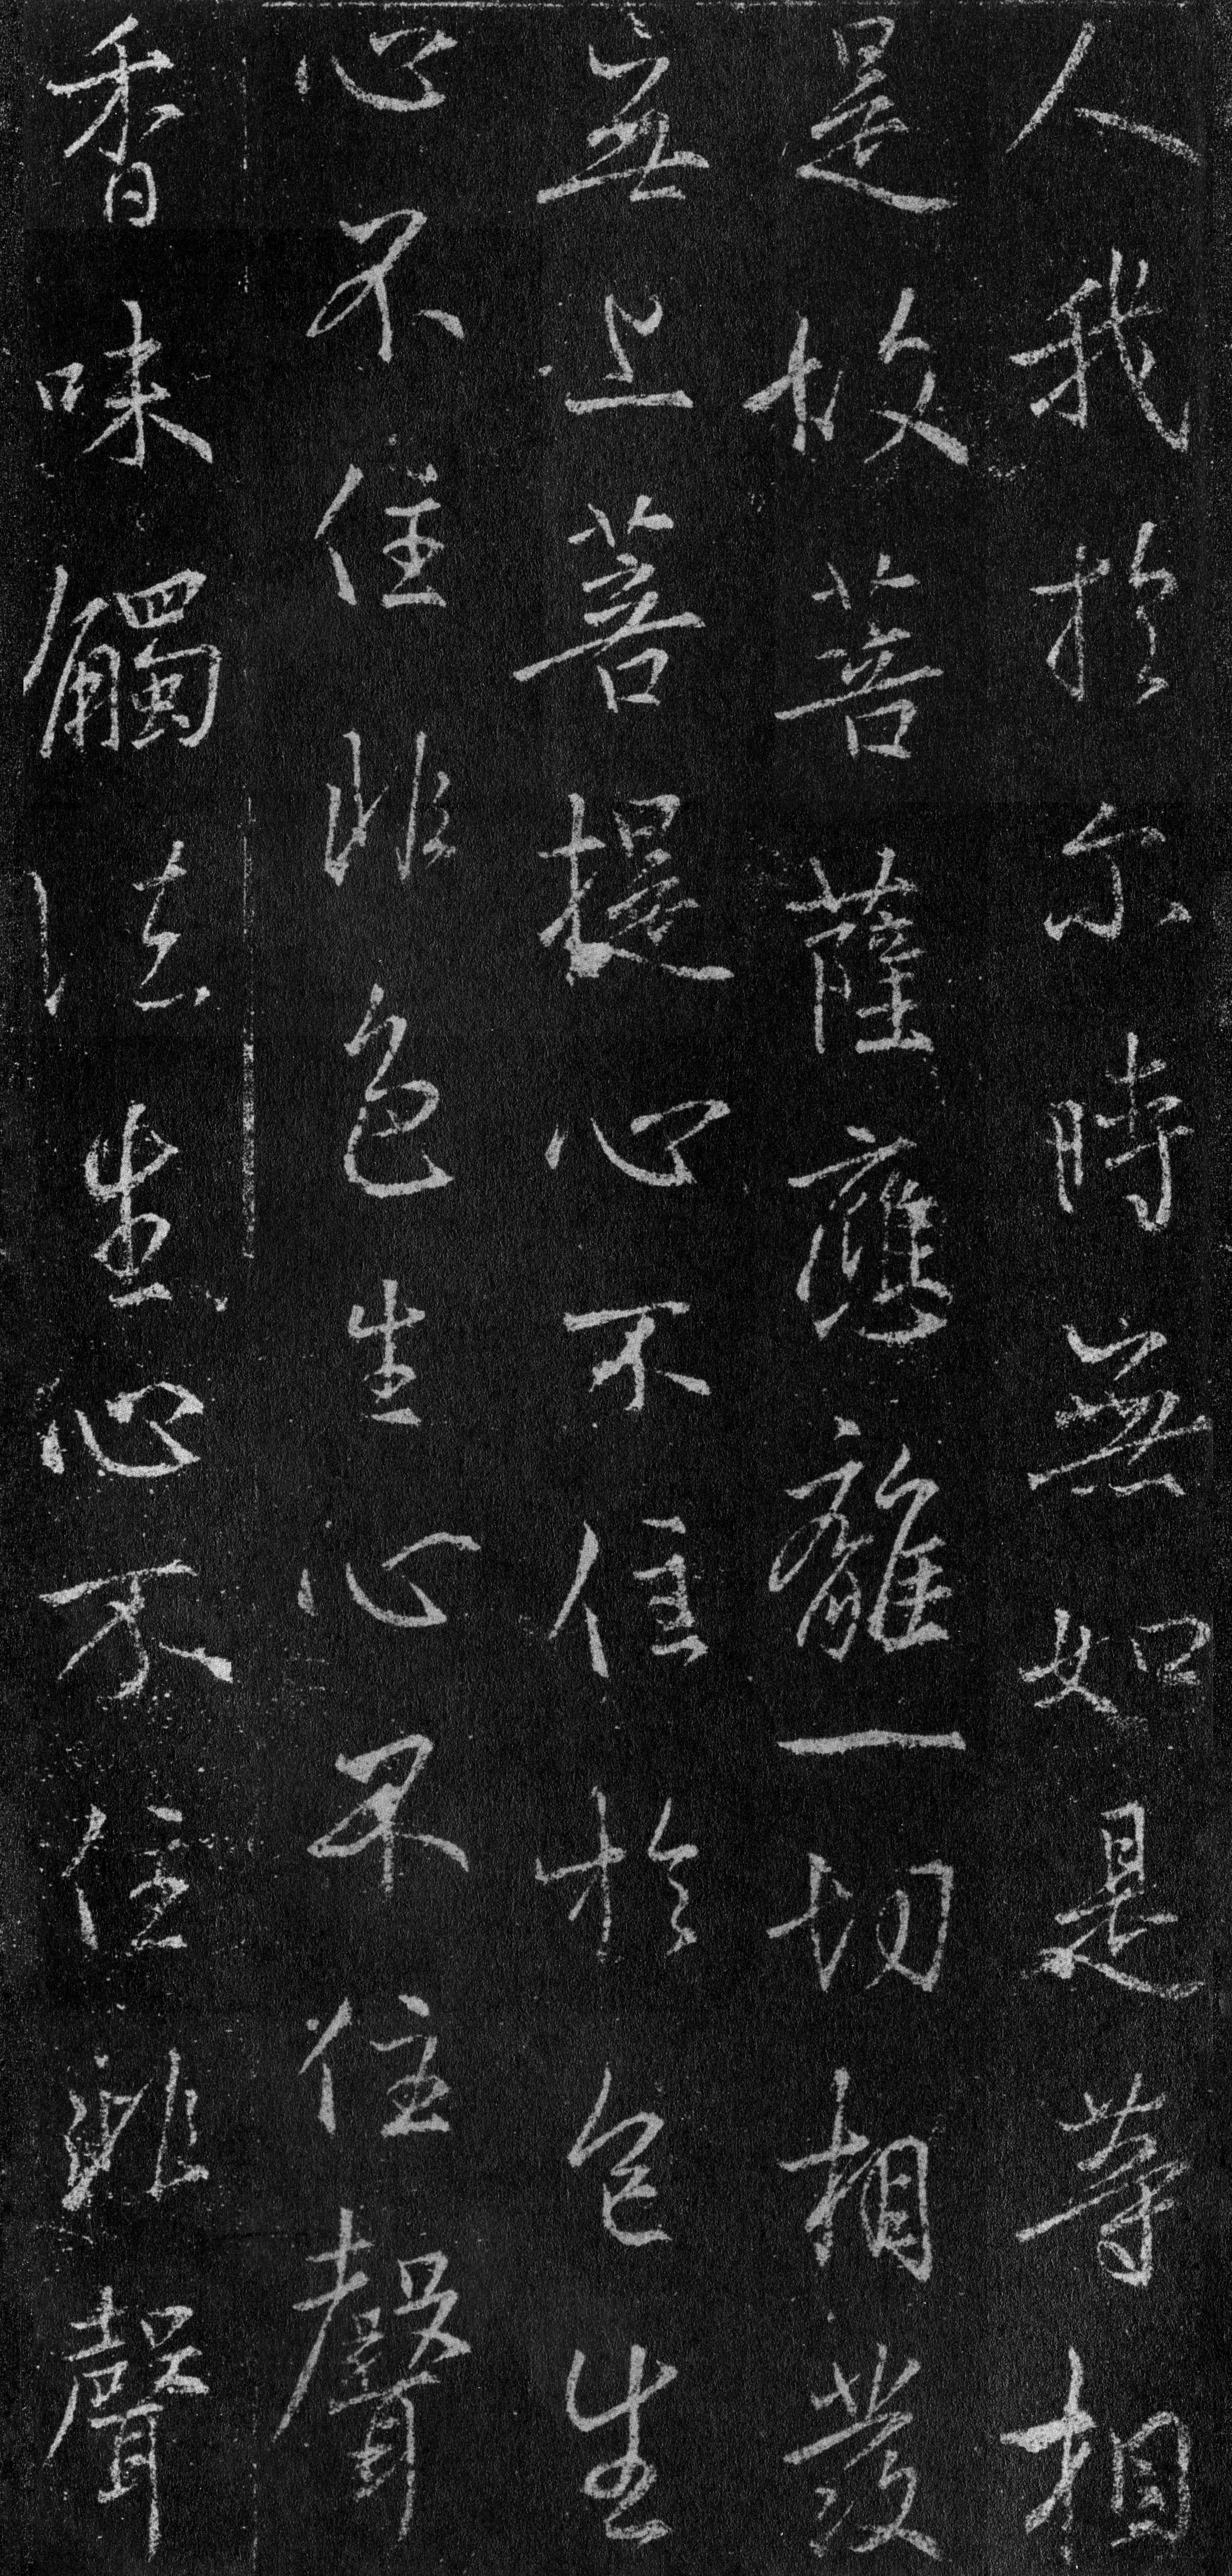 人我於尓時無如是等相
是故菩薩應離一切相發
無上菩提心不住於色生
心不住非色生心不住聲
香味觸法生心不住非聲